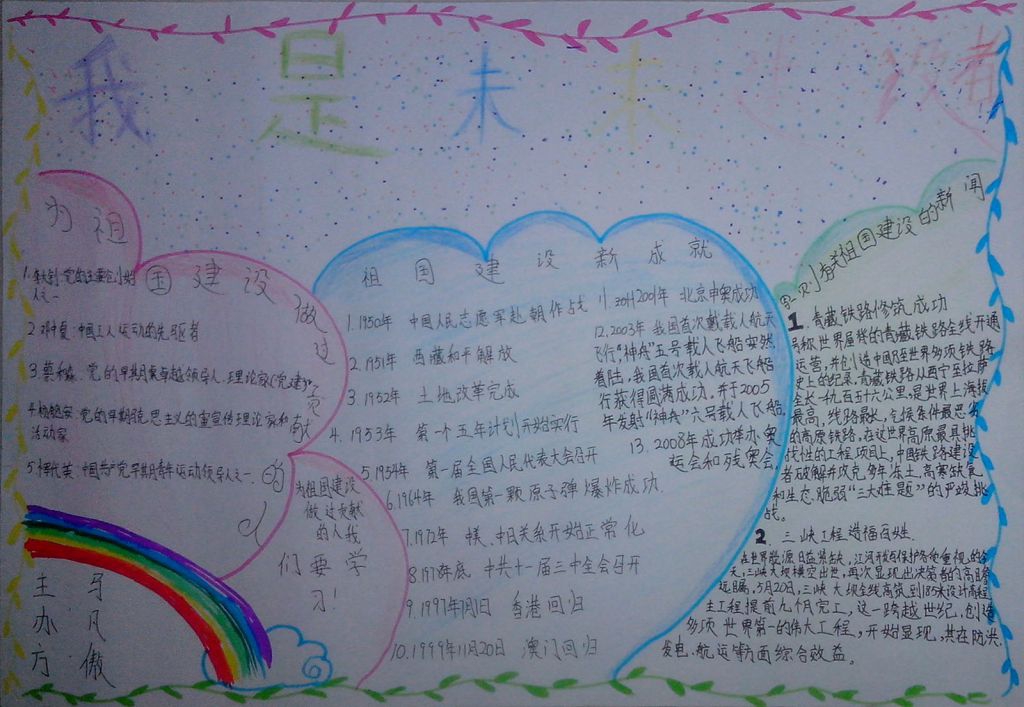 我是未来建设者
为祖国建设做过贡献的人
1.李大钊:党的主要创始人之一
2.邓中夏:中国工人运动的先驱者
3.蔡和森:党的早期卓越领导人.理论家(党建)
4.杨匏安:党的早期
思主义的
宣传理论家和
活动家
5.恽代英:中国共产党早期青年运动领导人之一.
为祖国建设
做过贡献
的人我
们要学
习!
主办方
马凡傲
祖国建设新成就
1.1950年 中国人民志愿军赴朝作战
2.1951年 西藏和平解放
3.1952年 土地改革完成
4.1953年 第一个五年计划开始实行
5.1954年 第一届全国人民代表大会召开
6.1964年 我国第一颗原子弹爆炸成功.
7.1972年 中日关系开始正常化
8.1978年底 中共十一届三中全会召开
9.1997年7月1日 香港回归
10.1999年11月20日 澳门回归
11.2001年 北京申奥成功
12.2003年 我国首次载人航天
飞行"神舟"五号载人飞船安然
着陆,我国首次载人航天飞船
行获得圆满成功.并于2005
年发射"神舟"六号载人飞船
13.2008年成功举办奥
运会和残奥会
有关祖国建设的新闻
1.青藏铁路修筑成功
号称世界屋脊的青藏铁路全线开通
运营,并创造中国乃至世界多项铁路
史上的纪录.青藏铁路从西宁至拉萨
全长一九百五十六公里,是世界上海拔
最高,线路最长,气候条件最恶劣
的高原铁路,在这世界高原最具挑
战性的工程项目上,中国铁路建设
者破解并攻克多年冻土,高寒缺氧
和生态脆弱"三大难题"的严峻挑
战。
2.三峡工程造福百姓.
在世界能源日益紧缺,江河开发与保护备受重视的今
天,三峡大坝横空出世,再次显现出决策者的高瞻
远瞩,5月20日,三峡大坝全线高筑到185米设计高程
主工程提前九个月完工,这一跨越世纪,创造
多项世界第一的伟大工程,开始显现,其在防洪
发电.航运等方面综合效益。